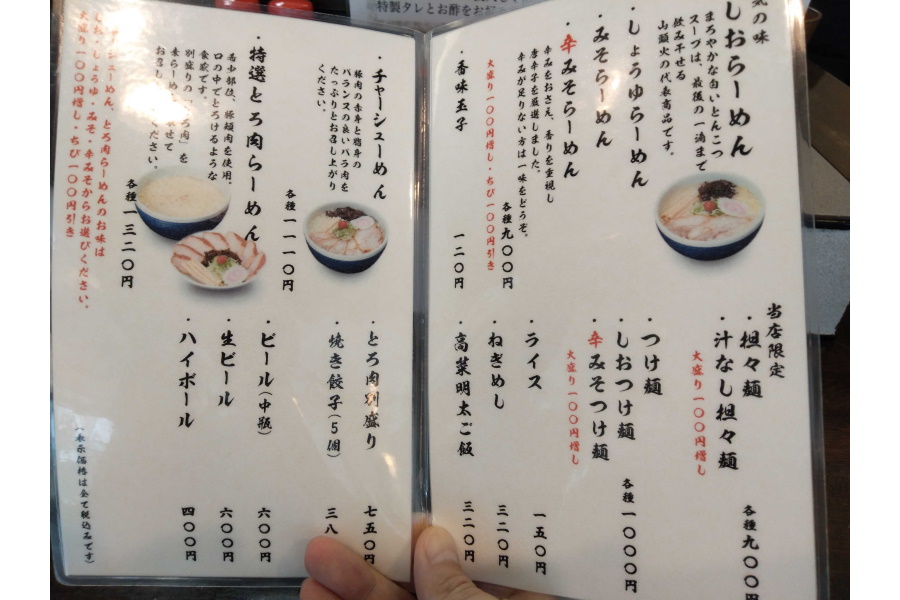 特製タレとお酢をお
気の味
しおらーめん
まろやかな白いとんこつ
スープは、最後の一滴まで
飲み干せる
山頭火の代表商品です。
・しょうゆらーめん
・みそらーめん
・辛みそらーめん
辛みをおさえ、香りを重視し
唐辛子を厳選しました。
辛みが足りない方は一味をどうぞ。
各種九〇〇円
大盛り一〇〇円増し・ちび一〇〇円引き
・香味玉子
一二〇円
当店限定
・担々麺
・汁なし担々麺
各種九〇〇円
大盛り一〇〇円増し
・つけ麺
・しおつけ麺
・辛みそつけ麺
各種一〇〇〇円
大盛り一〇〇円増し
・ライス
一五〇円
・ねぎめし
三二〇円
・高菜明太ご飯
三二〇円
・チャーシューめん
豚肉の赤身と脂身の
バランスの良いバラ肉を
たっぷりとお召し上がり
ください。
各種一一一〇円
・特選とろ肉らーめん
希少部位、豚頬肉を使用。
口の中でとろけるような
食感です。
別盛りの「とろ肉」を
各種一三二〇円
チャーシューめん、とろ肉らーめんのお味は
しお・しょうゆ・みそ・辛みそからお選びください。
大盛り一〇〇円増し・ちび一〇〇円引き
・とろ肉別盛り
七五〇円
・焼き餃子(5個)
三八
・ビール(中瓶)
六〇〇円
・生ビール
六〇〇円
・ハイボール
四〇〇円
(表示価格は全て税込みです)